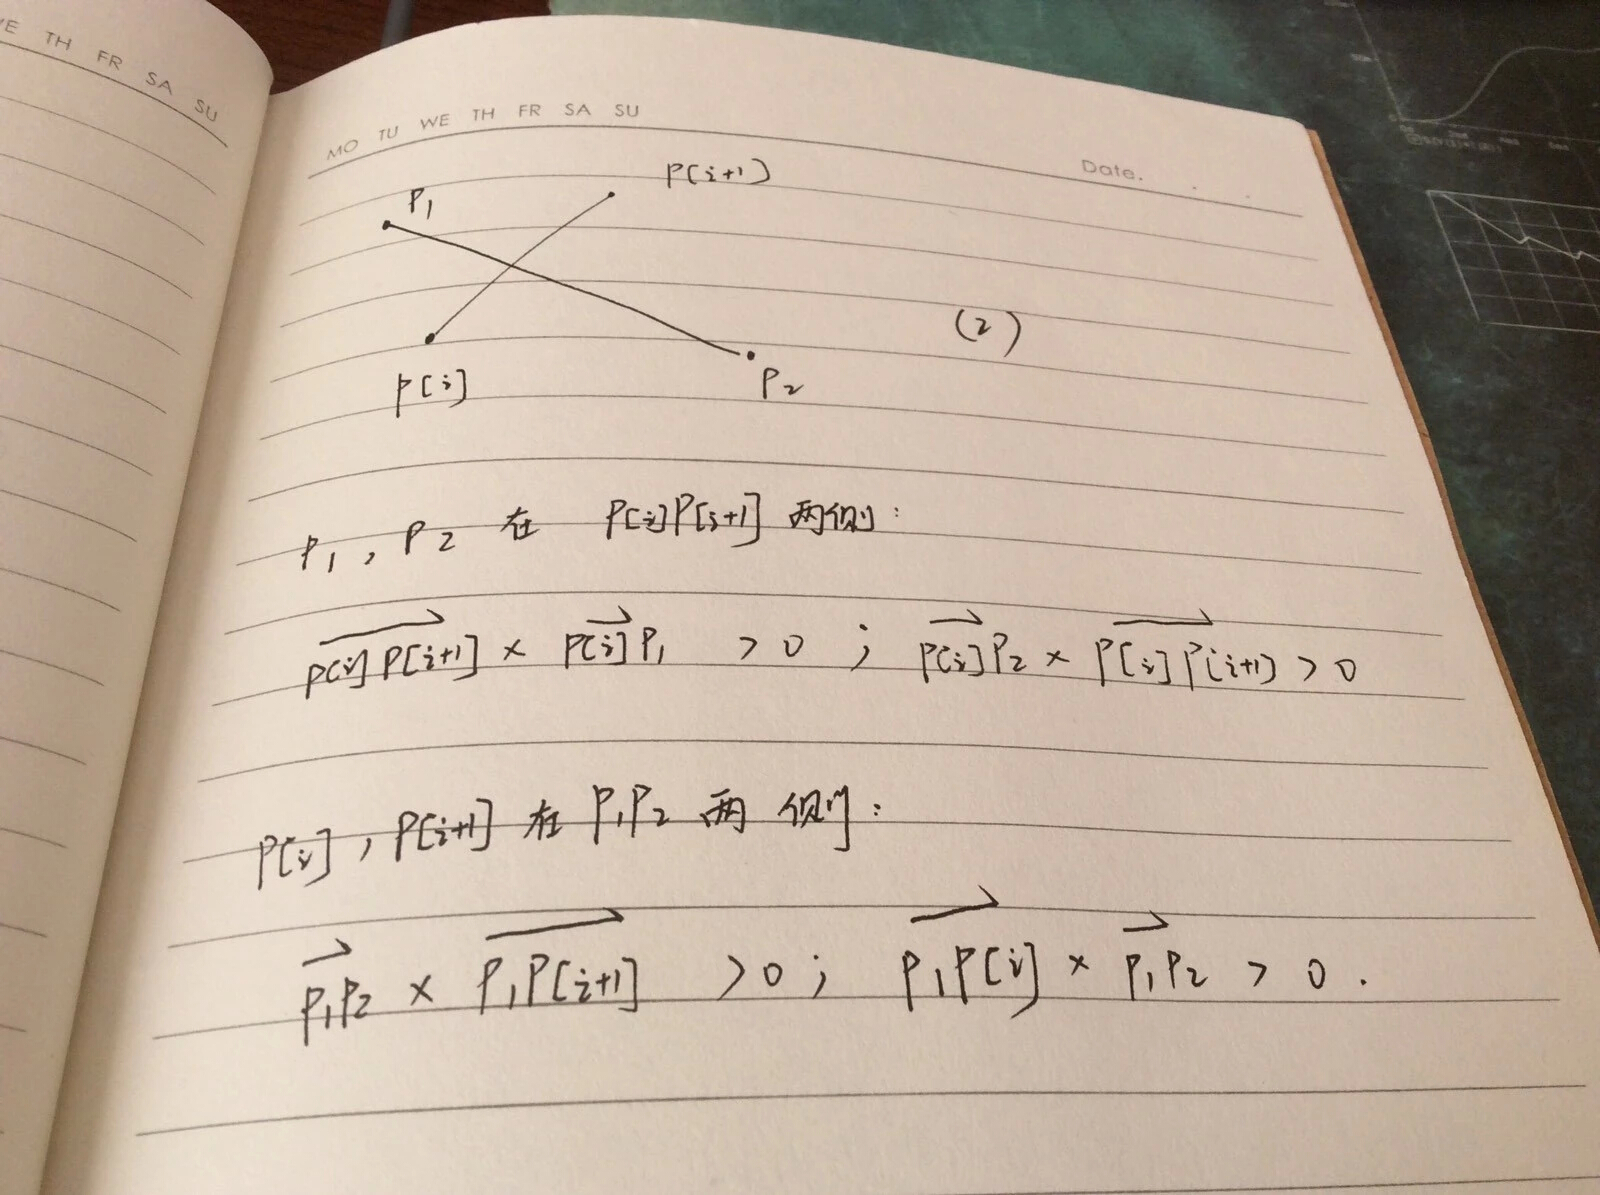 WE TH FR SA SU
MO TU WE TH FR SA SU
Date.
P[i+1]
P₁
(2)
P[i]
P₂
P₁, P₂ 在 P[i]P[i+1] 两侧:
P[i]P[i+1] × P[i]P₁ > 0 ; P[i]P₂ × P[i]P[i+1] > 0
P[i], P[i+1] 在 P₁P₂ 两侧:
P₁P₂ × P₁P[i+1] > 0; P₁P[i] × P₁P₂ > 0.